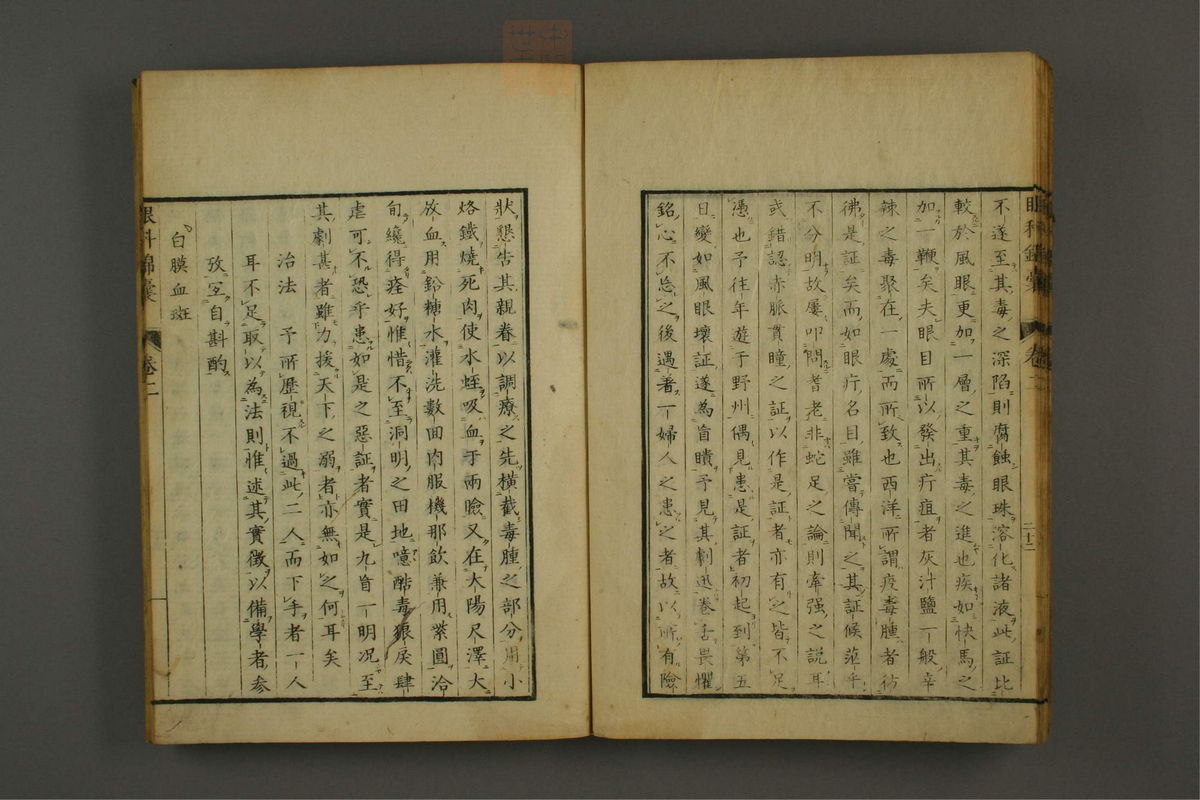 眼科錦囊 卷二 二十二
不遂至其毒之深陷則腐蝕眼珠溶化諸液此証比
較於風眼更加一層之重其毒之進也疾如快馬之
加一鞭矣夫眼目所以發出疔疽者灰汁鹽一般辛
辣之毒聚在一處而所致也西洋所謂疫毒腫者彷
彿是証矣而如眼疔名目雖嘗傳聞之其証候茫乎
不分明故屢叩問耆老非蛇足之論則牽强之説耳
或錯認赤脈貫瞳之証以作是証者亦有之皆不足
憑也予往年遊于野州偶見患是証者初起到第五
日變如風眼壞証遂為盲瞶予見其劇迅卷舌畏懼
銘心不怠之後遇著一婦人之患之者故以所有險
狀懇告其親眷以調療之先横截毒腫之部分用小
烙鐵燒死肉使水蛭吸血于兩瞼又在大陽尺澤大
放血用鉛糖水灌洗數回内服機那飲兼用紫圓洽
旬纔得痊好惟惜不至洞明之田地噫酷毒狼戾肆
虐可不恐乎患如是之惡証者實是九盲一明況至
其劇甚者雖力援天下之溺者亦無如之何耳矣
治法 予所歷視不過此二人而下手者一人
耳不足取以為法則惟述其實徴以備學者參
攷宜自斟酌
白膜血斑
眼科錦囊 卷二